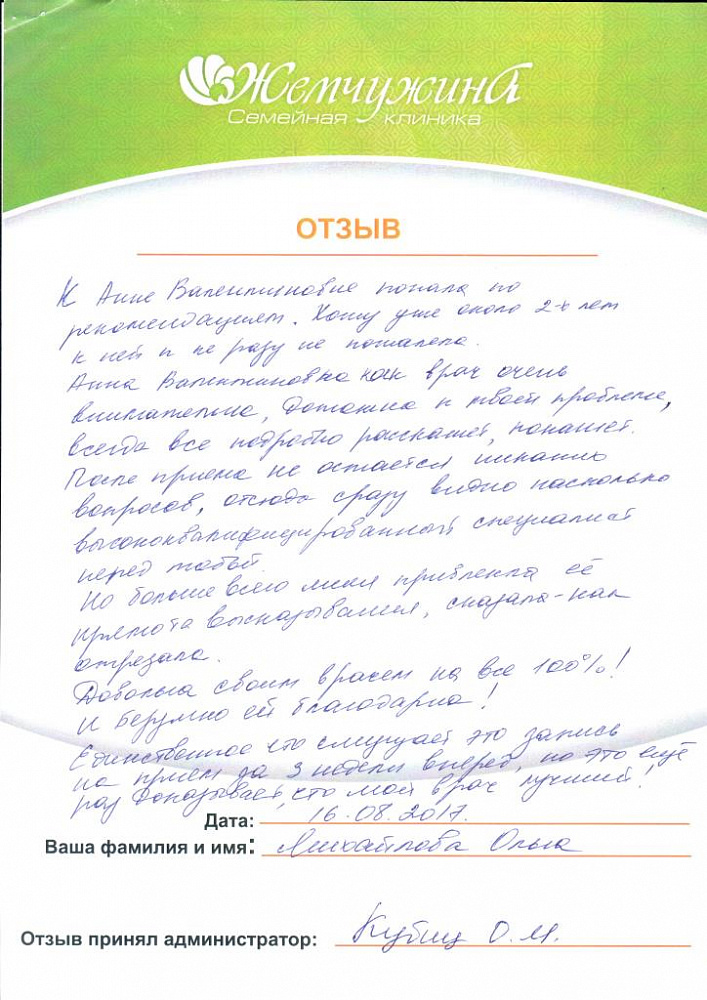 Жемчужина
Семейная клиника
ОТЗЫВ
К Анне Валентиновне попала по
рекомендациям. Хожу уже около 2-х лет
к ней и не разу не пожалела.
Анна Валентиновна как врач очень
внимательна, дотошна к твоей проблеме,
всегда все подробно расскажет, покажет.
После приема не остается никаких
вопросов, отсюда сразу видно насколько
высококвалифицированный специалист
перед тобой.
Но больше всего меня привлекла её
прямота высказывания, сказала-как
отрезала.
Довольна своим врачем на все 100%!
И безумно ей благодарна!
Единственное что смущает это запись
на прием за 3 недели вперед, но это ещё
раз доказывает, что мой врач лучший!
Дата: 16.08.2017.
Ваша фамилия и имя: Михайлова Ольга
Отзыв принял администратор: О.И.